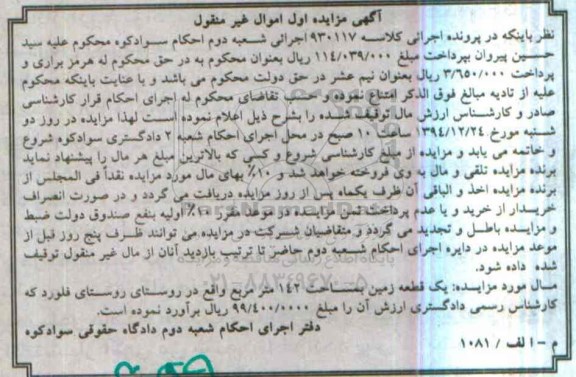 آگهی مزایده اول اموال غیر منقول
نظر باینکه در پرونده اجرائی کلاسه ۹۳۰۱۱۷ اجرائی شعبه دوم احکام سوادکوه محکوم علیه سید
حسین پیروان بپرداخت مبلغ ۱۱۴/۰۳۹/۰۰۰ ریال بعنوان محکوم به در حق محکوم له هرمز براری و
پرداخت ۳/۶۵۰/۰۰۰ ریال بعنوان نیم عشر در حق دولت محکوم می باشد و با عنایت باینکه محکوم
علیه از تادیه مبالغ فوق الذکر امتناع نموده و حسب تقاضای محکوم له اجرای احکام قرار کارشناسی
صادر و کارشناس ارزش مال توقیف شده را بشرح ذیل اعلام نموده است لهذا مزایده در روز دو
شنبه مورخ ۱۳۹۴/۱۲/۲۴ ساعت ۱۰ صبح در محل اجرای احکام شعبه ۲ دادگستری سوادکوه شروع
و خاتمه می یابد و مزایده از مبلغ کارشناسی شروع و کسی که بالاترین مبلغ هر مال را پیشنهاد نماید
برنده مزایده تلقی و مال به وی فروخته خواهد شد و ۱۰٪ بهای مال مورد مزایده نقداً فی المجلس از
برنده مزایده اخذ و الباقی آن ظرف یکماه پس از روز مزایده دریافت می گردد و در صورت انصراف
خریدار از خرید و یا عدم پرداخت ثمن مزایده در موعد مقرر ۱۰٪ اولیه بنفع صندوق دولت ضبط
و مزایده باطل و تجدید می گردد و متقاضیان شرکت در مزایده می توانند ظرف پنج روز قبل از
موعد مزایده در دایره اجرای احکام شعبه دوم حاضر تا ترتیب بازدید آنان از مال غیر منقول توقیف
شده داده شود.
۰۲۱-۸۸۳۴۹۶۷۰-۵
مال مورد مزایده: یک قطعه زمین بمساحت ۱۴۲ متر مربع واقع در روستای روستای فلورد که
کارشناس رسمی دادگستری ارزش آن را مبلغ ۹۹/۴۰۰/۰۰۰۰ ریال برآورد نموده است.
دفتر اجرای احکام شعبه دوم دادگاه حقوقی سوادکوه
م - الف / ۱۰۸۱